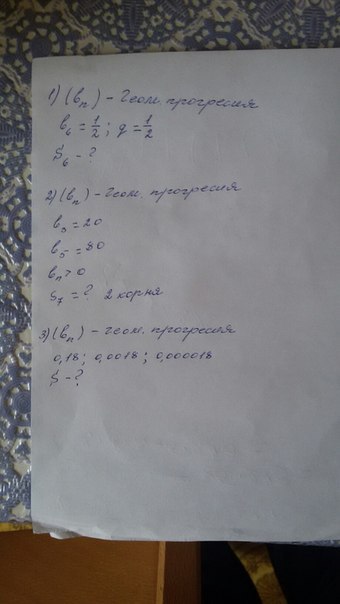 1) (bₙ) – геом. прогрессия
b₆ = 1/2; q = 1/2
S₆ - ?
2) (bₙ) – геом. прогрессия
b₃ = 20
b₅ = 80
bₙ > 0
S₇ = ? 2 корня
3) (bₙ) – геом. прогрессия
0,18; 0,0018; 0,000018
S - ?